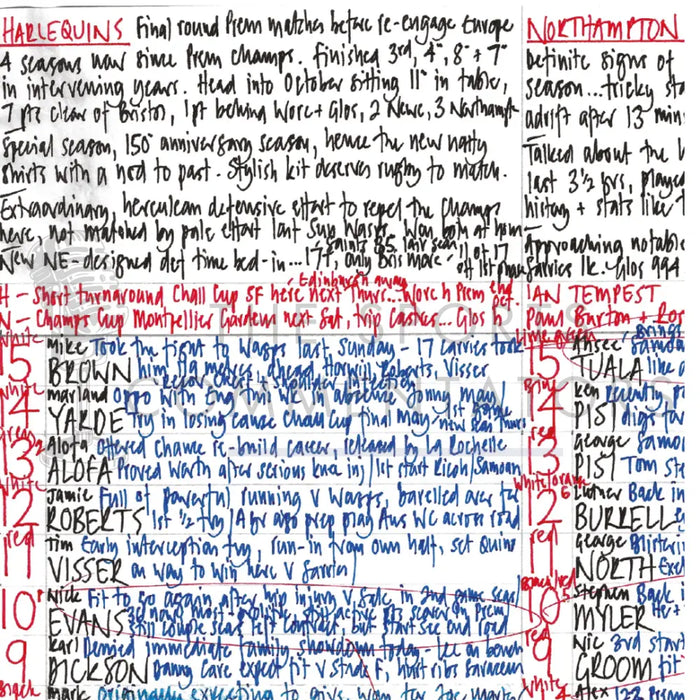 HARLEQUINS Final round Prem matches before re-engage Europe
4 seasons now since Prem champs. Finished 3rd, 4th, 8th + 7th
in intervening years. Head into October sitting 11th in table,
7 pts clear of Bristol, 1pt behind Worc + Glos, 2 Newc, 3 Northampton
Special season, 150th anniversary season, hence the new natty
shirts with a nod to past. Stylish kit deserves rugby to match.
Extraordinary, herculean defensive effort to repel the champs
here, not matched by pale effort last Sun Wasps. Won both at home
New NE-designed def time bed-in...17t, only Bris more -
H - Short turnaround Chall Cup SF here next Thurs... Worc h Prem
Edinburgh away
N - Champs Cup Montpellier Gardens next Sat, trip Castres... Glos h
NORTHAMPTON
Definite signs of
season...tricky sta
adrift after 13 min
Talked about the
last 3½ yrs, played
history + stats like
Approaching notable
Glos 994
IAN TEMPEST
Paul Burton + Ros
THE STORY
COMMENTATORS
15 Mike BROWN Took the fight to Wasps last Sunday - 17 carries took
him 119 metres, ahead Horwill, Roberts, Visser
White
14 Marland YARDE Oppo with Eng v in absence Jonny May
Recov chest + shoulder infection
Try in losing cause Chall Cup final May
red
13 Alofa ALOFA Offered chance re-build career, released by La Rochelle
Proved worth after serious knee inj / 1st start Ricoh / Samoan
White
12 Jamie ROBERTS Full of powerful running v Wasps, barrelled over for
1st ½ try / A yr ago prep play Aus WC across road
red
11 Tim VISSER Early interception try, run-in from own half, set Quins
on way to win here v Saries
10 Nick EVANS Fit to go again after hip injury v Sale in 2nd game seas
still couple seas left contract, but start see end road
9 Karl DICKSON Denied immediate family showdown today - Lee on bench
Danny Care expect fit v Stade F, hurt ribs Saracens
Mark Originally expecting to give way for Joe Mark
15 Ahsee TUALA Samoa
like a
14 Ken PISI recently
digs for
red
13 George PISI Samoa
Tom Ste
12 Luther BURRELL Back in
11 George NORTH Blistering
10 Stephen MYLER Back i
red
9 Nic GROOM 3rd start
fit